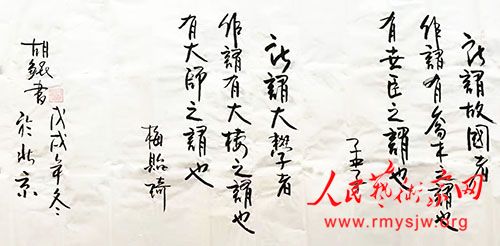 所謂故國者
非謂有喬木之謂也
有世臣之謂也
孟子
所謂大學者
非謂有大樓之謂也
有大師之謂也
梅貽琦
胡錕書
戊戌年冬
於北京
人民藝術家网
www.rmysjw.org